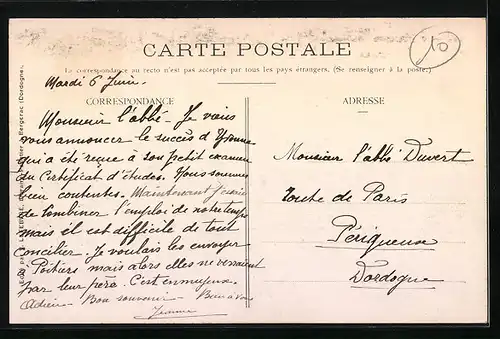 10
CARTE POSTALE
La correspondance au recto n'est pas acceptée par tous les pays étrangers. (Se renseigner à la poste.)
Mardi 6 Juin.
CORRESPONDANCE
ADRESSE
Monsieur l'abbé - Je viens
vous annoncer le succès d'Yvonne
qui a été reçue à son petit examen
du Certificat d'études. Nous sommes
bien contentes. Maintenant
de combiner l'emploi de notre temps
mais il est difficile de tout
concilier. Je voulais les envoyer
à Poitiers mais alors elles ne verraient
pas leur père. C'est ennuyeux.
Adieu - Bon souvenir - Bien à vous
Jeanne
Monsieur l'abbé Duvert
Route de Paris
Périgueux
Dordogne
Bergerac (Dordogne).